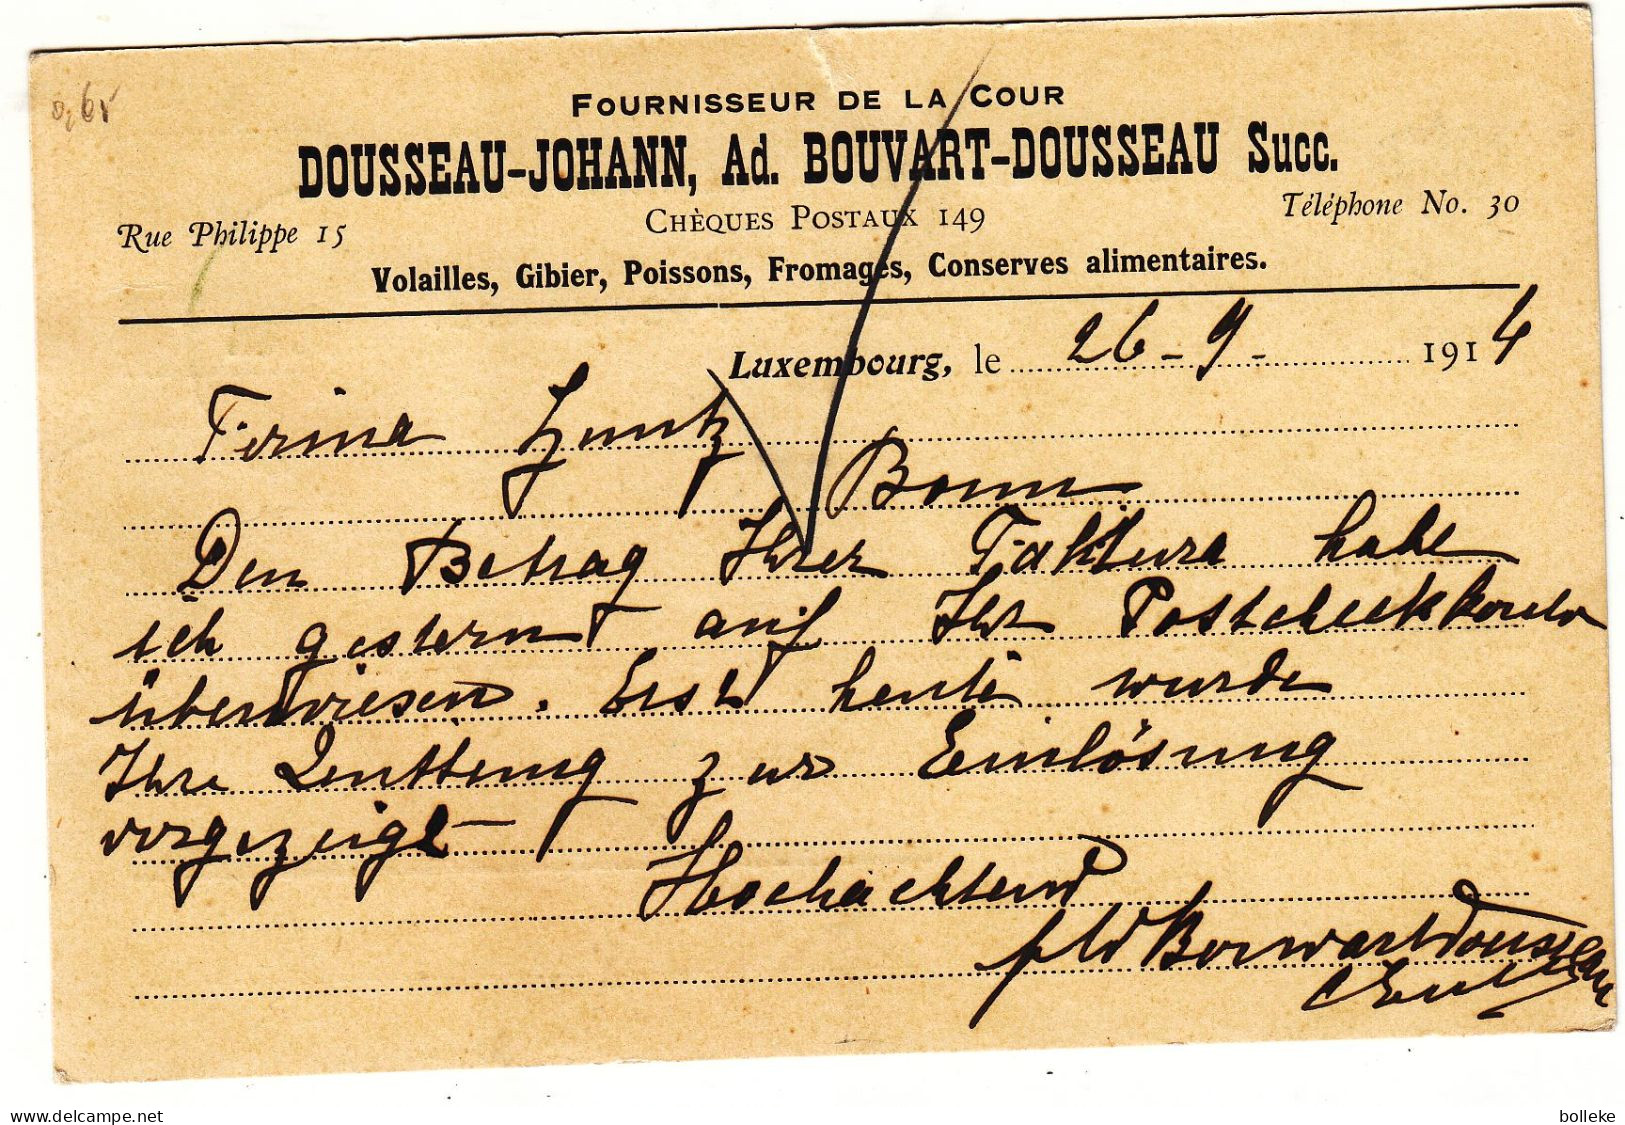 0,65
FOURNISSEUR DE LA COUR
DOUSSEAU-JOHANN, Ad. BOUVART-DOUSSEAU Succ.
Rue Philippe 15 CHÈQUES POSTAUX 149 Téléphone No. 30
Volailles, Gibier, Poissons, Fromages, Conserves alimentaires.
Luxembourg, le 26-9- 1914
Firma Zuntz
Bonn
Den Betrag Ihrer Faktura habe
ich gestern auf Ihr Postcheckkonto
überwiesen. Erst heute wurde
Ihre Quittung zur Einlösung
vorgezeigt
Hochachtend
Bouvart Dousseau
delcampe.net
bolleke